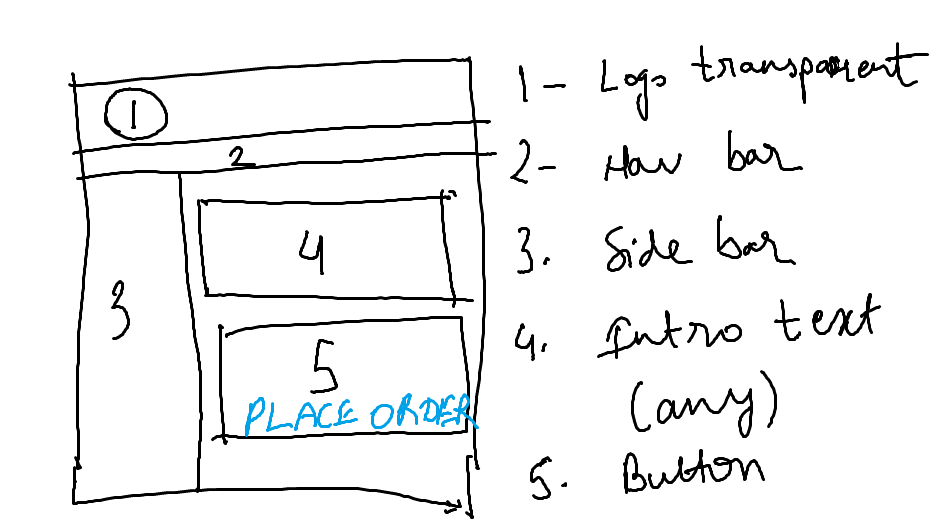 1
2
3
4
5
PLACE ORDER
1 - Logo transparent
2 - Nav bar
3. Side bar
4. Intro text
(any)
5. Button